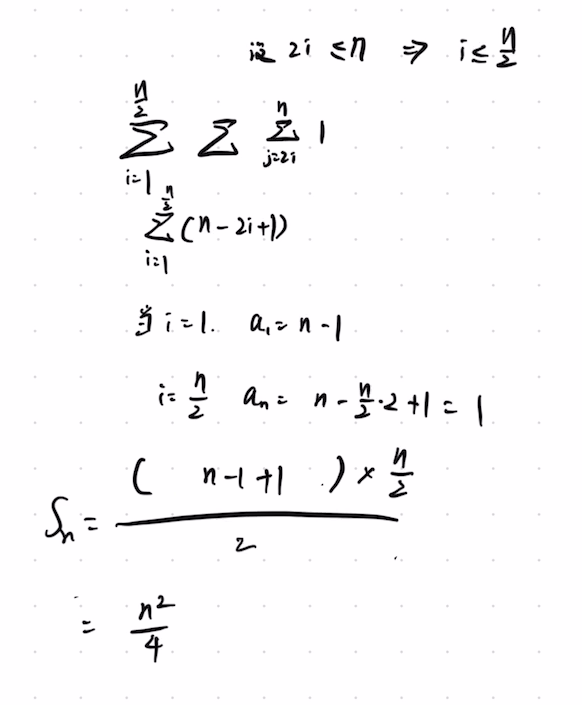 设 2i ≤ n ⇒ i ≤ n/2
∑_{i=1}^{n/2} ∑ ∑_{j=2i}^{n} 1
∑_{i=1}^{n/2} (n-2i+1)
当 i=1. a₁= n-1
i= n/2 aₙ= n - n/2·2 +1 = 1
Sₙ = ( n-1+1 ) × n/2 / 2
= n²/4